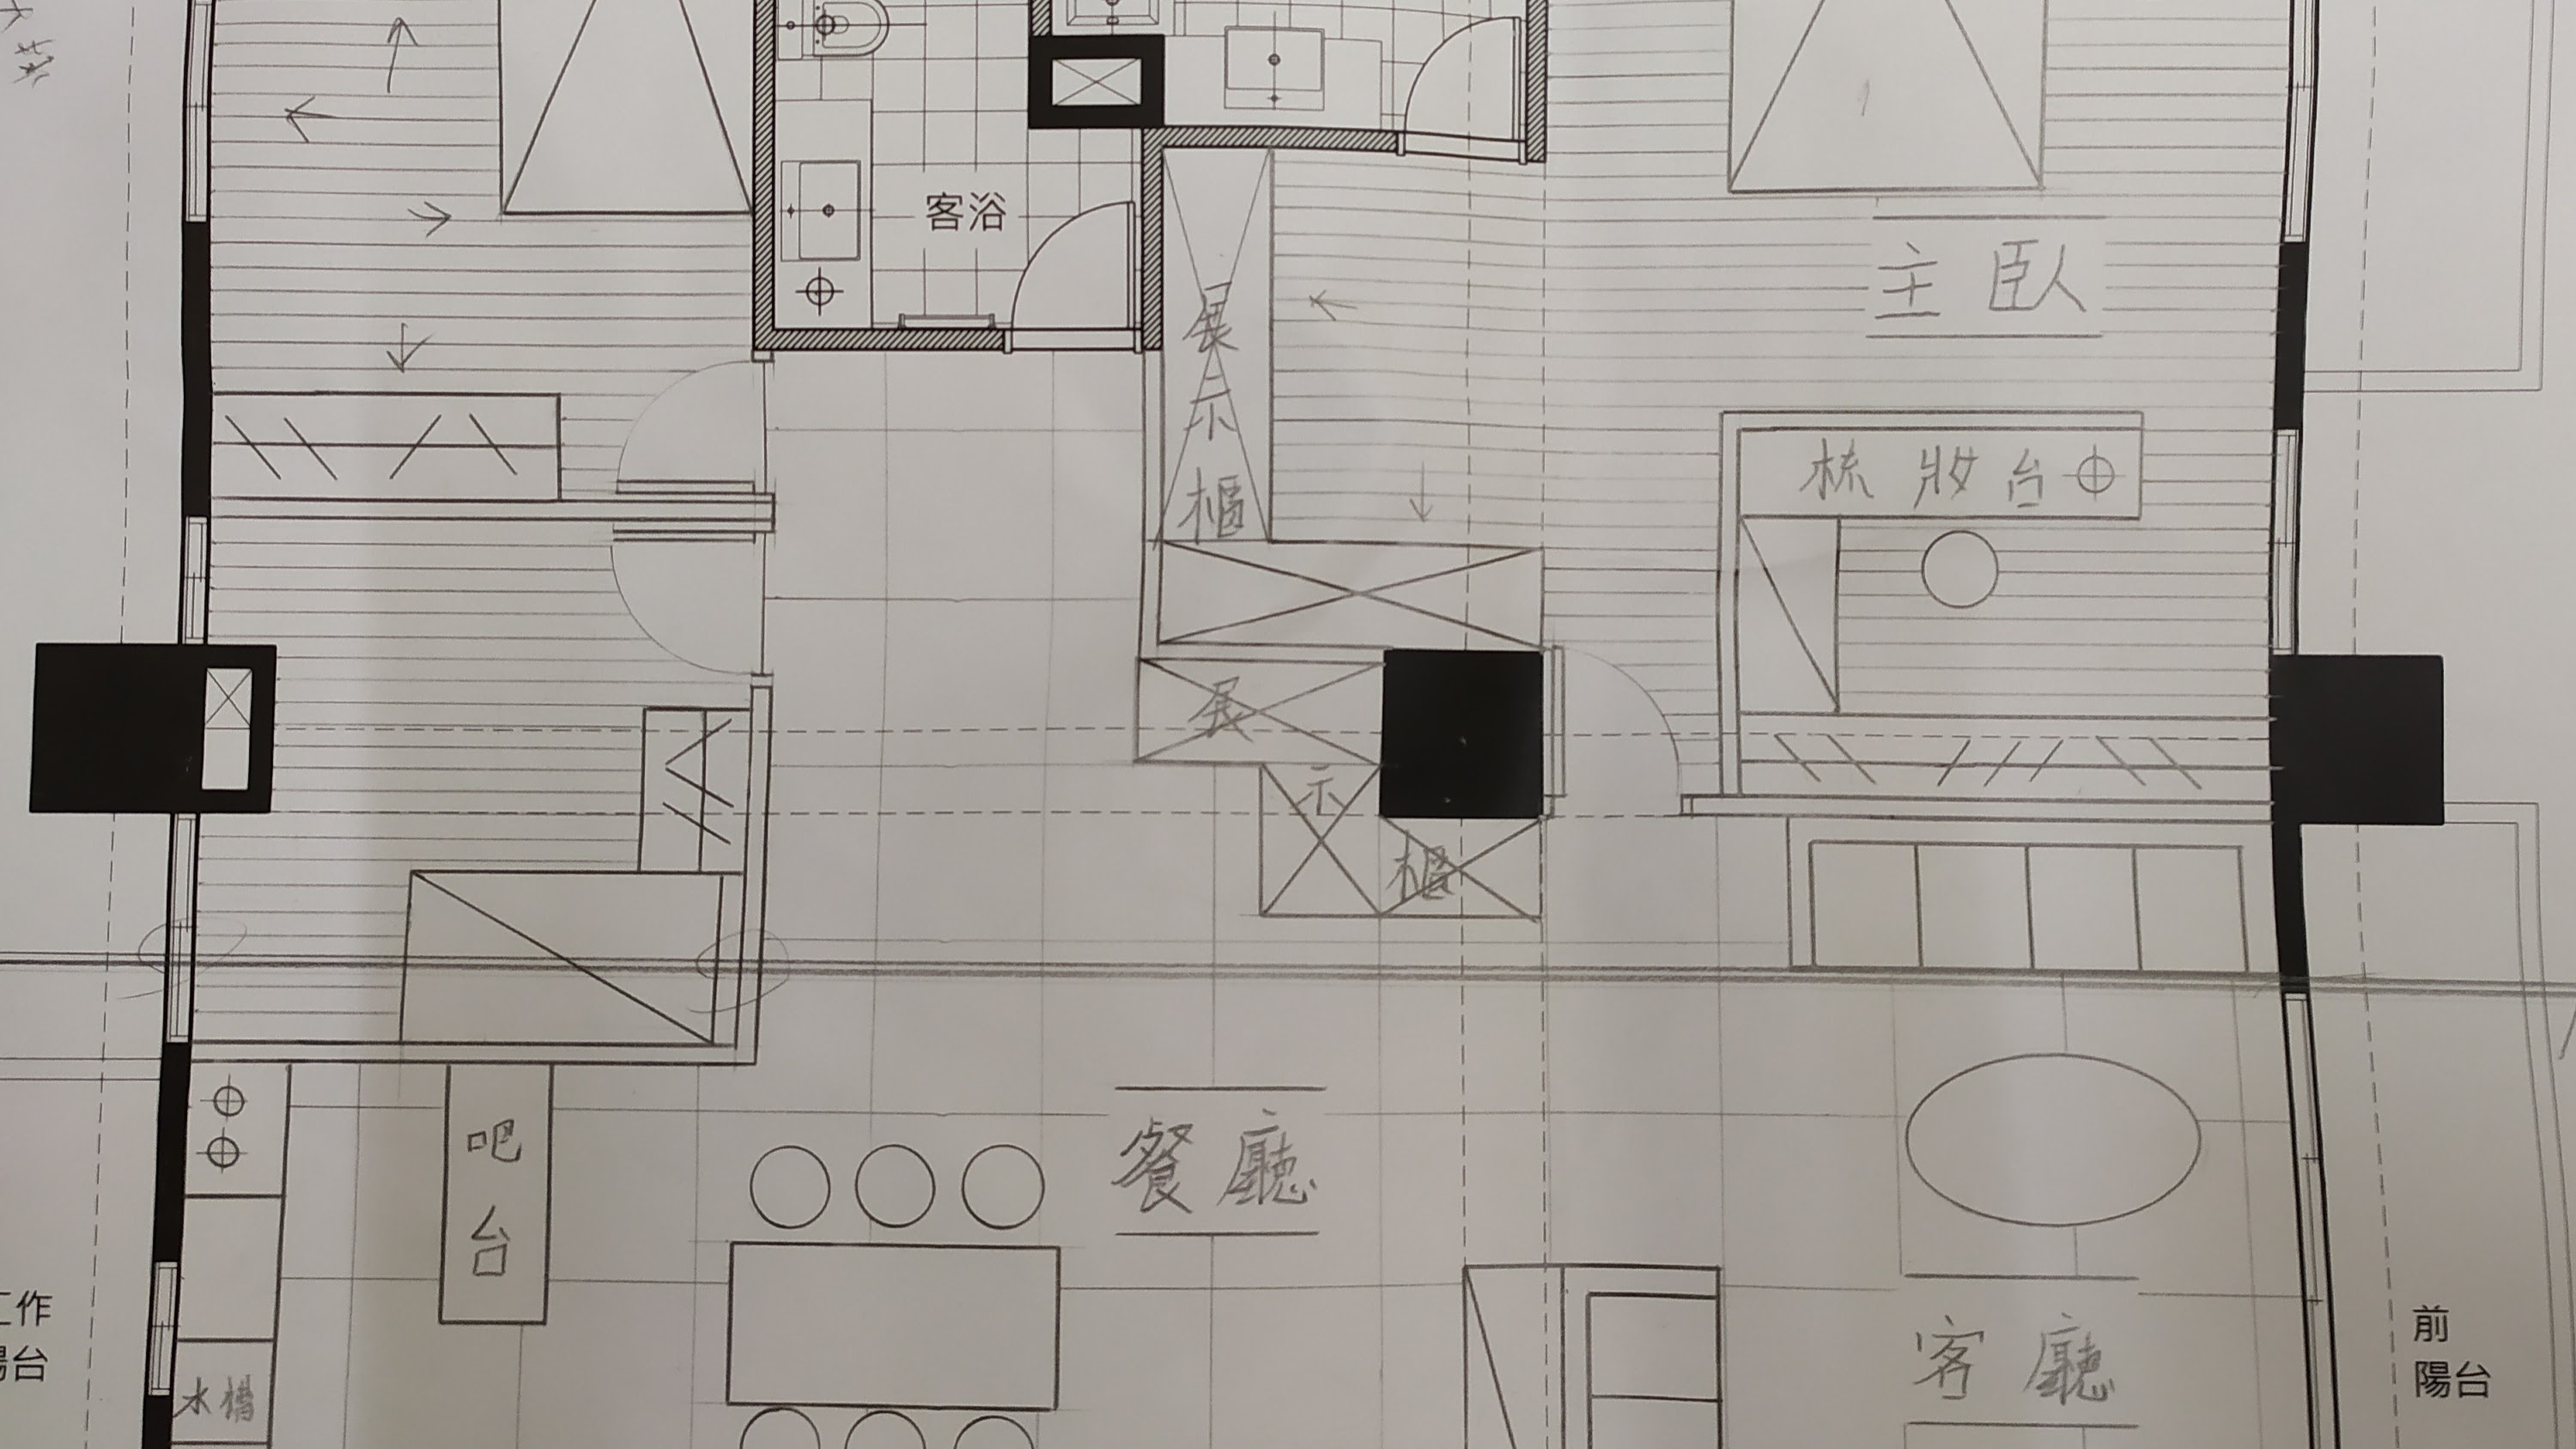 客浴
主臥
展示櫃
梳妝台
展示櫃
吧台
餐廳
客廳
工作
陽台
前
陽台
水槽